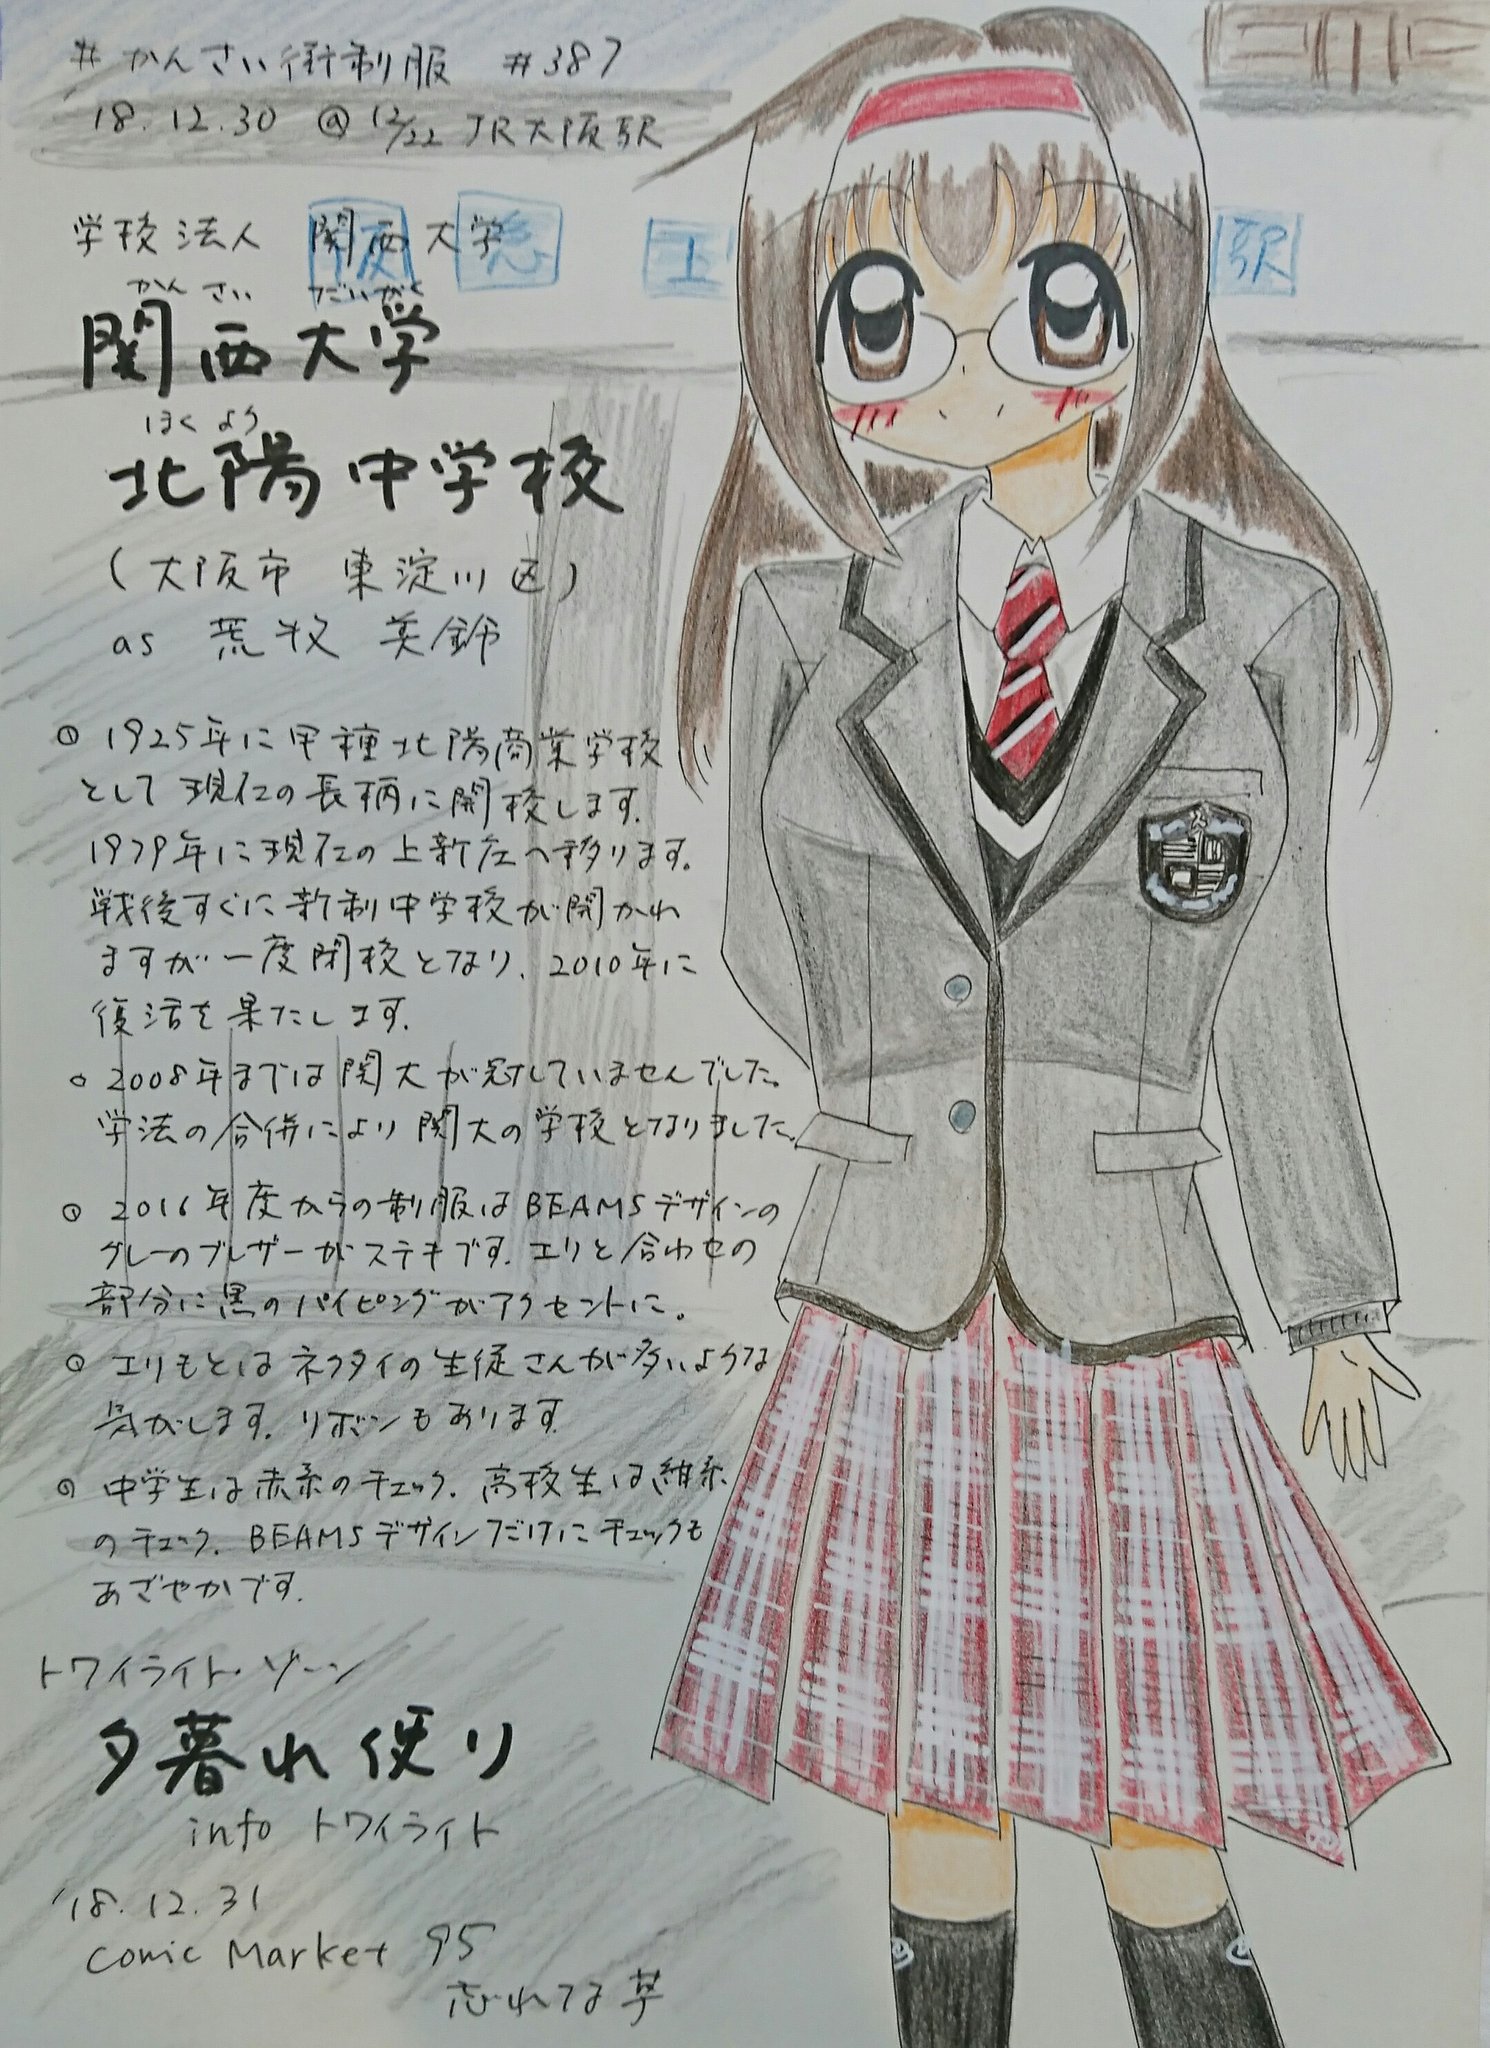 #かんさい街制服 #387
18.12.30 @12/22 JR大阪駅
学校法人 関西大学
阪 急 駅
かんさい だいがく
関西大学
ほくよう
北陽中学校
(大阪市 東淀川区)
as 荒牧 美鈴
1925年に甲種北陽商業学校
として現在の長柄に開校します.
1979年に現在の上新庄へ移ります.
戦後すぐに新制中学校が開かれ
ますが一度閉校となり、2010年に
復活を果たします.
2008年までは関大が冠していませんでした。
学法の合併により関大の学校となりました.
2016年度からの制服はBEAMSデザインの
グレーのブレザーがステキです.エリと合わせの
部分に黒のパイピングがアクセントに。
エリもとはネクタイの生徒さんが多いような
気がします.リボンもあります.
中学生は赤系のチェック.高校生は紺系
のチェック.BEAMSデザインだけにチェックも
あざやかです.
トワイライト・ゾーン
夕暮れ便り
info トワイライト
'18.12.31
Comic Market 95
忘れな草